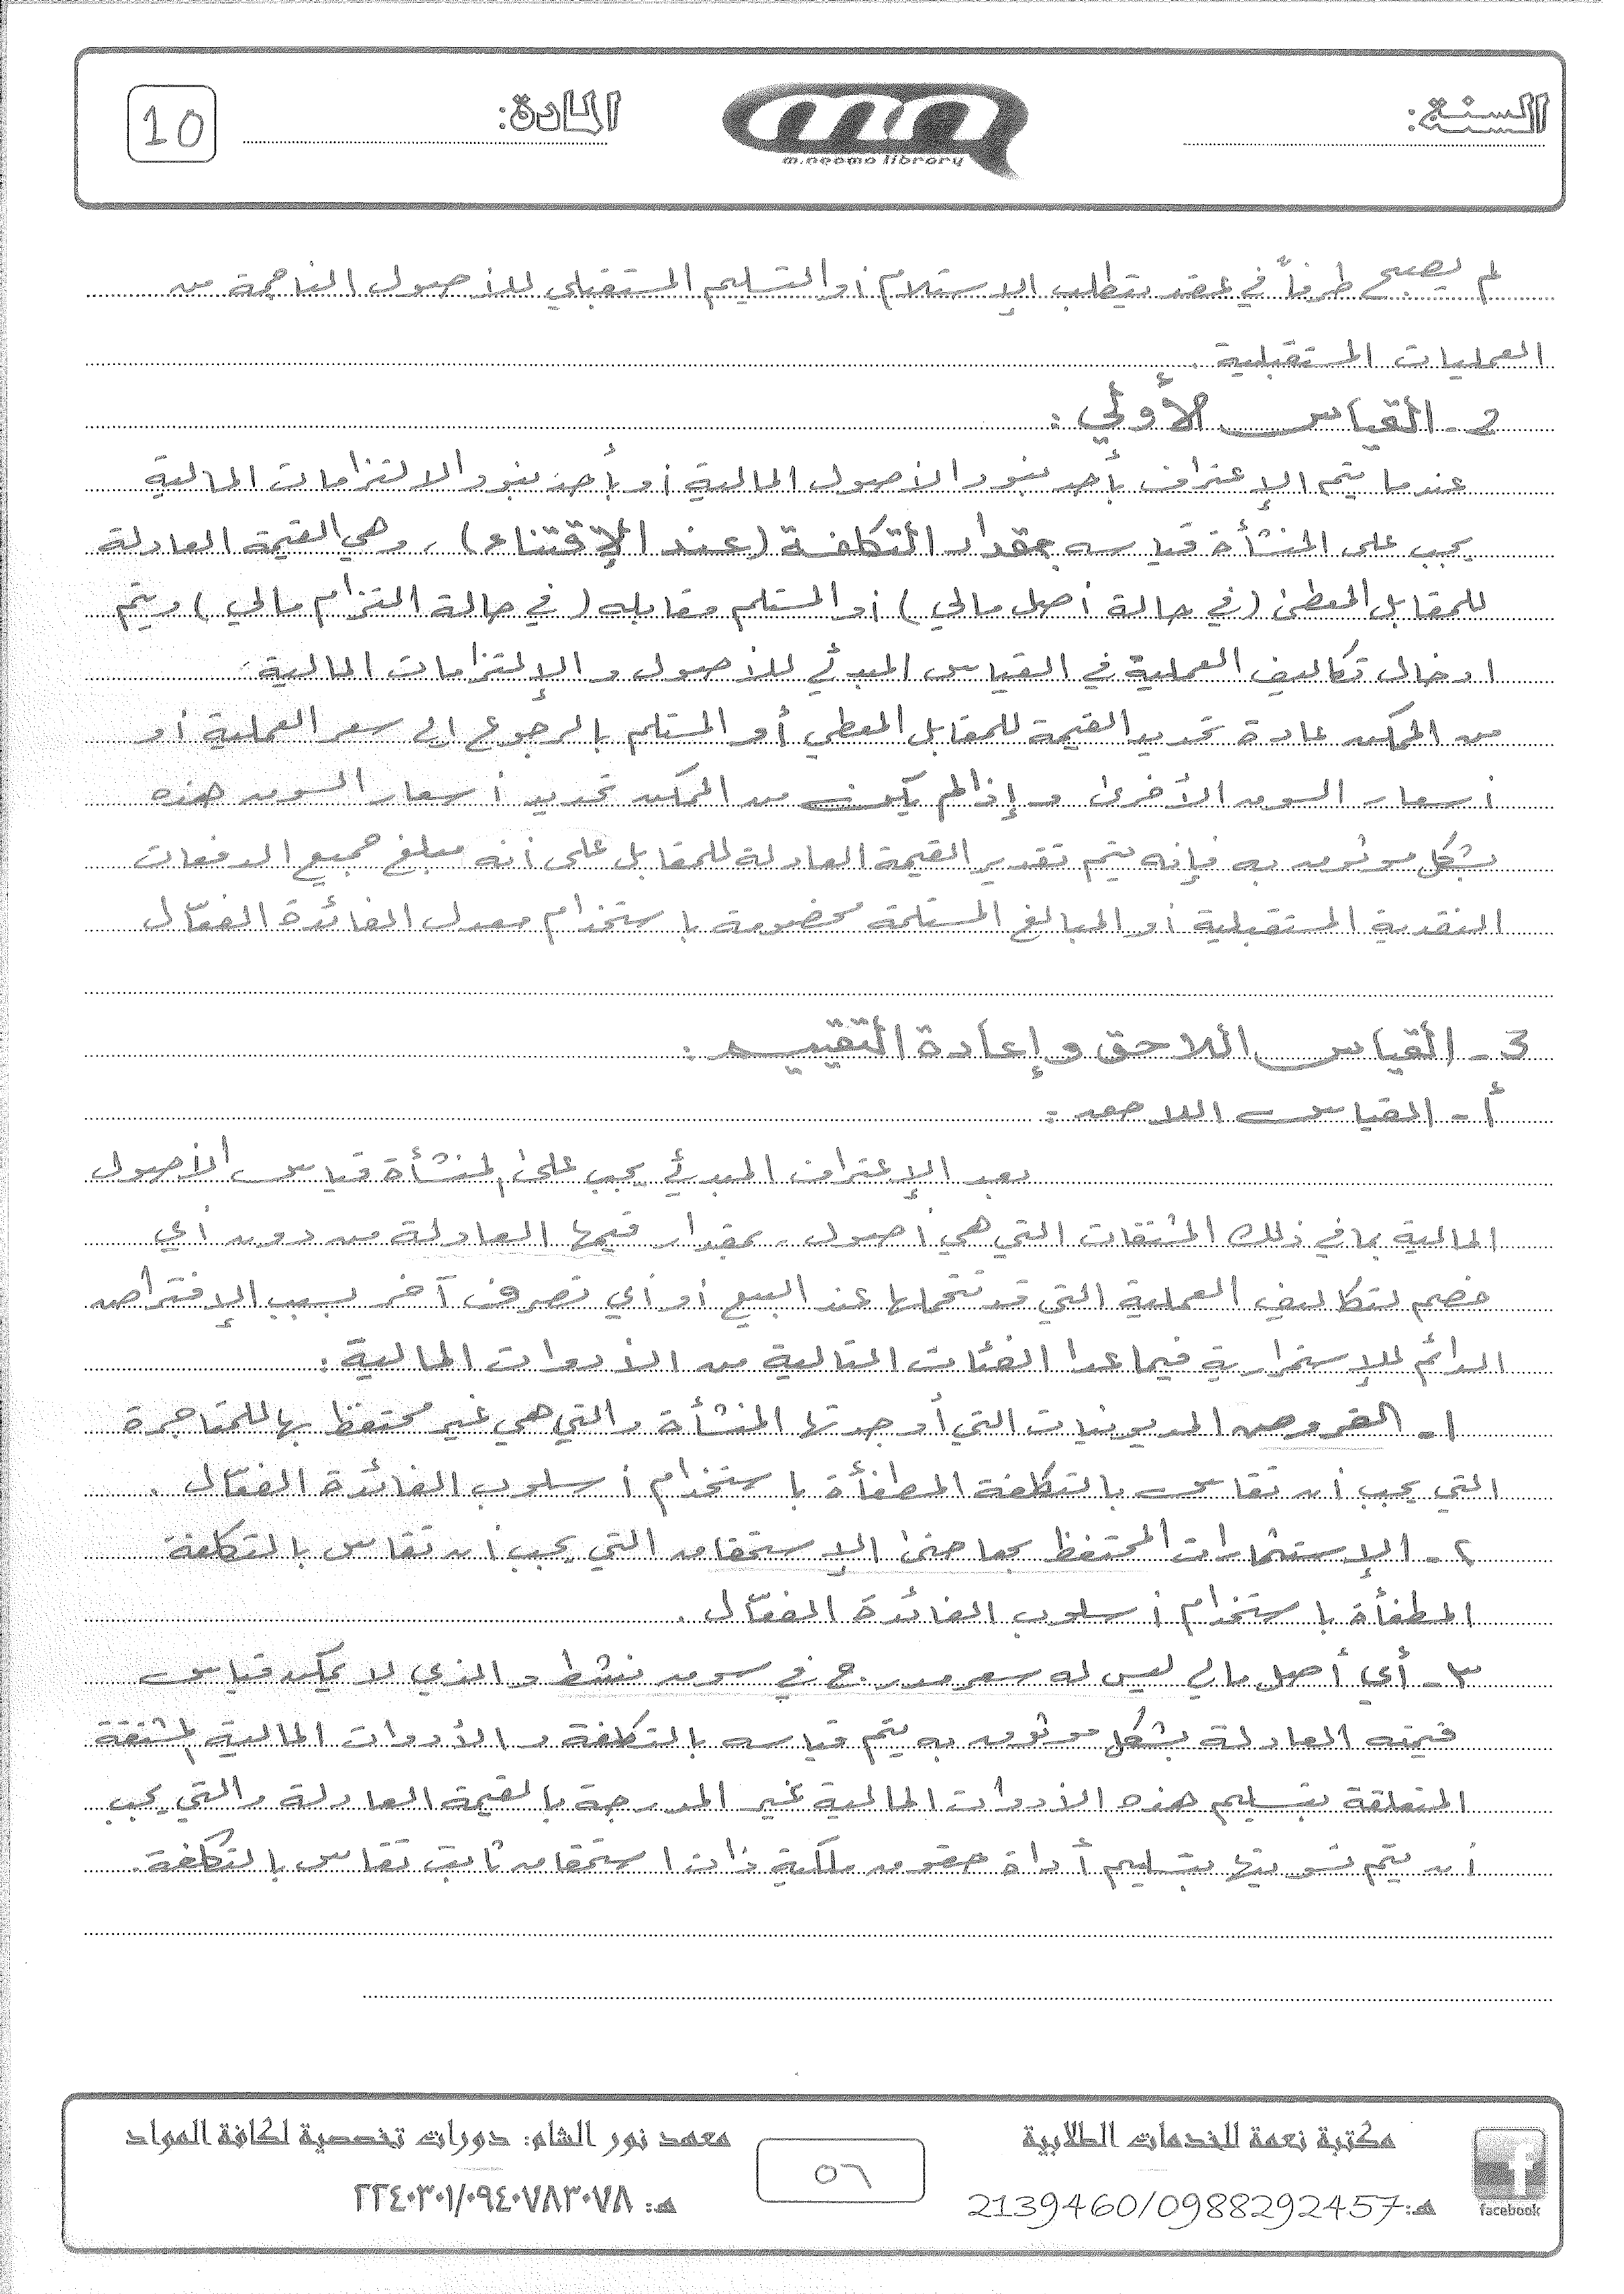 السنة:
m.neama library
المادة:
10
لم يصبح طرفاً في عقد يتطلب الإستلام أو التسليم المستقبلي للأصول الناجمة من
العمليات المستقبلية .
2- القياس الأولي :
عندما يتم الإعتراف بأحد بنود الأصول المالية أو بأحد بنود الالتزامات المالية
يجب على المنشأة قياسه بمقدار التكلفة (عند الإقتناء) ، وهي القيمة العادلة
للمقابل المعطى (في حالة أصل مالي) أو المستلم مقابله (في حالة التزام مالي) ويتم
ادخال تكاليف العملية في القياس المبدئي للأصول و الإلتزامات المالية .
من الممكن عادة تحديد القيمة للمقابل المعطي أو المستلم بالرجوع الى سعر العملية أو
أسعار السوق الأخرى و إذا لم يكون من الممكن تحديد أسعار السوق هذه
بشكل موثوق به فإنه يتم تقدير القيمة العادلة للمقابل على أنه مبلغ جميع الدفعات
النقدية المستقبلية أو المبالغ المستلمة مخصومة باستخدام معدل الفائدة الفعّال
3- القياس اللاحق وإعادة التقييم :
أ- القياس اللاحق :
بعد الإعتراف المبدئي يجب على المنشأة قياس الأصول
المالية بما في ذلك المشتقات التي هي أصول - بمقدار قيمها العادلة من دون أي
خصم لتكاليف العملية التي قد تتحملها عند البيع أو أي تصرف آخر بسبب الإفتراض
الدائم للإستمرارية فيما عدا الفئات التالية من الأدوات المالية :
١- القروض المديونيات التي أوجدتها المنشأة والتي هي غير محتفظ بها للمتاجرة
التي يجب أن تقاس بالتكلفة المطفأة باستخدام أسلوب الفائدة الفعّال .
٢- الإستثمارات المحتفظ بها حتى الإستحقاق التي يجب أن تقاس بالتكلفة
المطفأة باستخدام أسلوب الفائدة الفعّال .
٣- أي أصل مالي ليس له سعر مدرج في سوق نشط و الذي لا يمكن قياس
قيمته العادلة بشكل موثوق به يتم قياسه بالتكلفة و الأدوات المالية المشتقة
المتعلقة بتسليم هذه الأدوات المالية غير المدرجة بالقيمة العادلة والتي يجب
أن يتم تسويتها بتسليم أداة حقوق ملكية ذات استحقاق ثابت تقاس بالتكلفة.
مكتبة نعمة للخدمات الطلابية
هـ: 2139460/0988292457
facebook
٥٦
معهد نور الشام: دورات تخصصية لكافة المواد
هـ: ٢٢٤٠٣٠١/٠٩٤٠٧٨٣٠٧٨